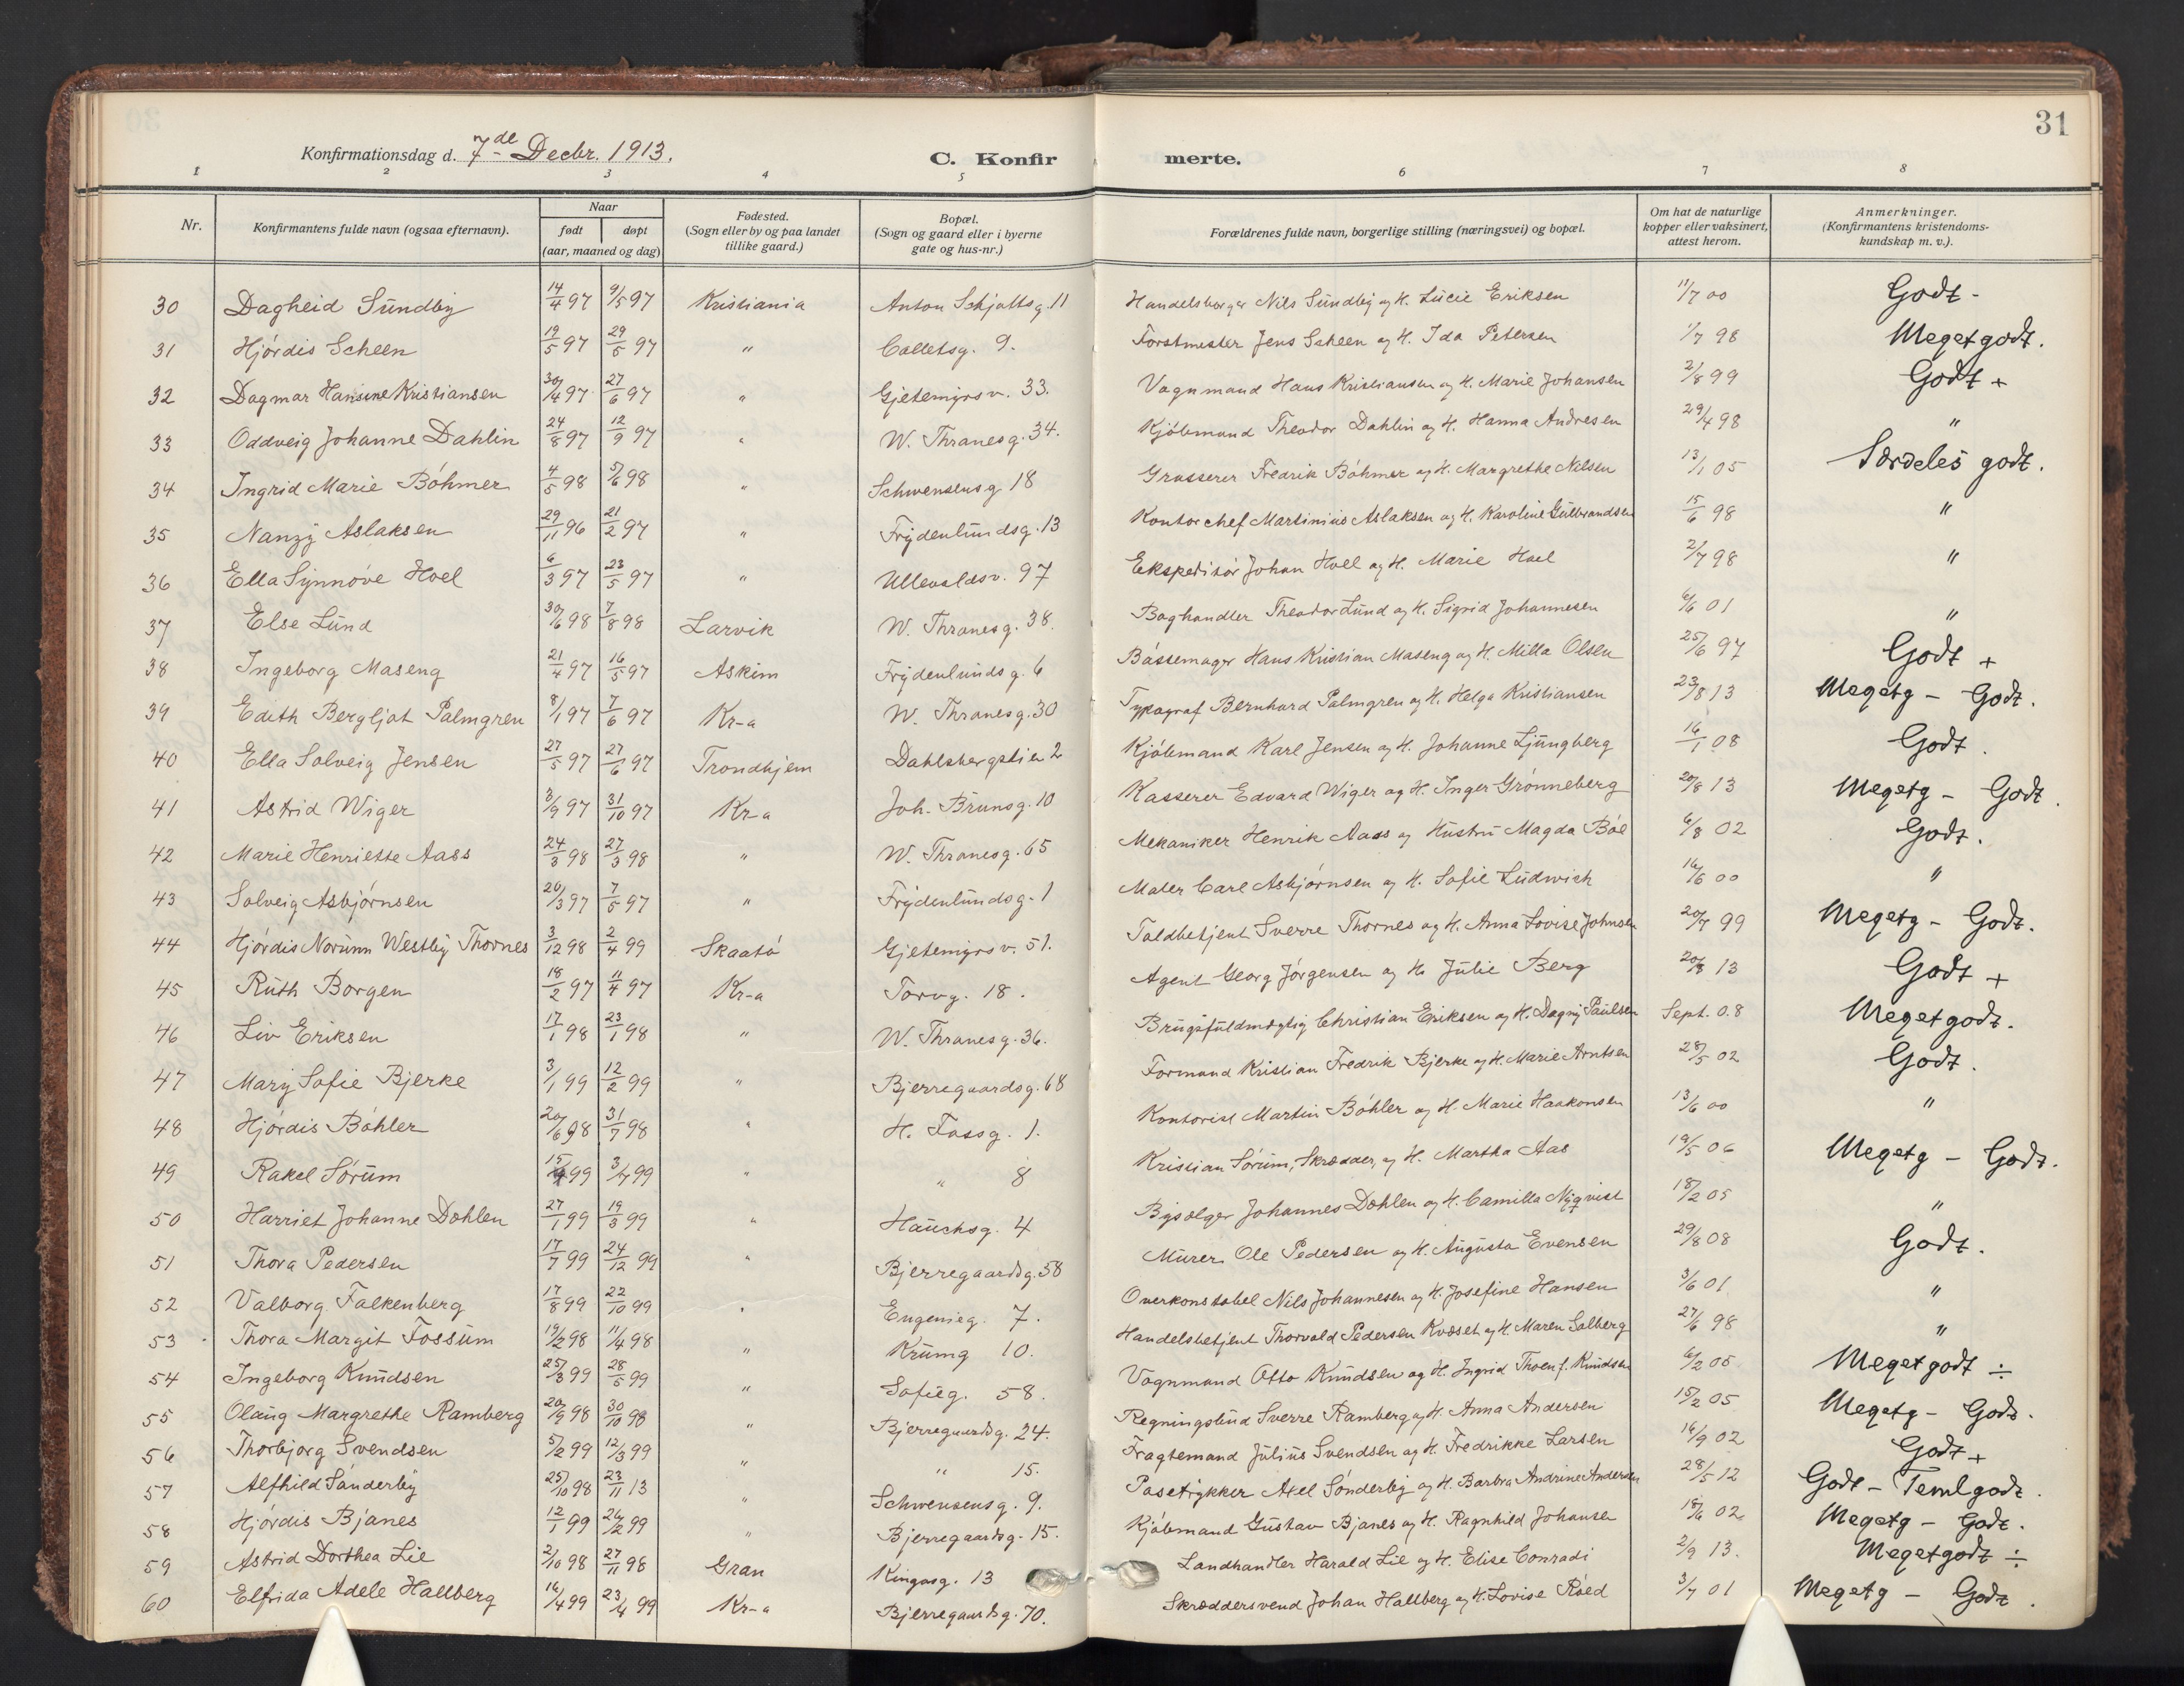 31
Konfirmationsdag d. 7de Decbr. 1913.
C. Konfir merte.
1 2 3 4 5 6 7 8
Nr. Konfirmantens fulde navn (ogsaa efternavn). Naar født døpt (aar, maaned og dag) Fødested. (Sogn eller by og paa landet tillike gaard.) Bopæl. (Sogn og gaard eller i byerne gate og hus-nr.) Forældrenes fulde navn, borgerlige stilling (næringsvei) og bopæl. Om hat de naturlige kopper eller vaksinert, attest herom. Anmerkninger. (Konfirmantens kristendoms-kundskap m. v.).
30 Dagheid Sundby 14/4 97 9/5 97 Kristiania Anton Schjøttsg. 11 Handelsborger Nils Sundby og H. Lucie Eriksen 11/7 00 Godt -
31 Hjørdis Scheen 19/5 97 29/5 97 " Colletsg. 9. Forstmester Jens Scheen og H. Ida Petersen 1/7 98 Megetgodt.
32 Dagmar Hansine Kristiansen 30/4 97 27/6 97 " Gjetemyrsv. 33. Vognmand Hans Kristiansen og H. Marie Johansen 2/8 99 Godt +
33 Oddveig Johanne Dahlin 24/8 97 12/9 97 " W. Thranesg. 34. Kjøbmand Theodor Dahlin og H. Hanna Andresen 29/4 98 "
34 Ingrid Marie Bøhmer 4/5 98 5/6 98 " Schwensensg 18 Grosserer Fredrik Bøhmer og H. Margrethe Nilsen 13/1 05 Særdeles godt.
35 Nanzy Aslaksen 29/11 96 21/2 97 " Frydenlundsg. 13 Kontorchef Martinius Aslaksen og H. Karoline Gulbrandsen 15/6 98 "
36 Ella Synnøve Hoel 6/3 97 23/5 97 " Ullevoldsv. 97 Ekspeditør Johan Hoel og H. Marie Hoel 2/7 98 "
37 Else Lund 30/6 98 7/8 98 Larvik W. Thranesg. 38. Boghandler Theodor Lund og H. Sigrid Johannesen 6/6 01 "
38 Ingeborg Maseng 21/4 97 16/5 97 Askim Frydenlundsg. 6 Bøssemager Hans Kristian Maseng og H. Milla Olsen 25/6 97 Godt +
39 Edith Bergljot Palmgren 8/1 97 7/6 97 Kr-a W. Thranesg. 30 Typograf Bernhard Palmgren og H. Helga Kristiansen 23/8 13 Megetg - Godt.
40 Ella Solveig Jensen 27/5 97 27/6 97 Trondhjem Dahlsbergstien 2 Kjøbmand Karl Jensen og H. Johanne Ljungberg 16/1 08 Godt.
41 Astrid Wiger 3/9 97 31/10 97 Kr-a Joh. Brunsg. 10 Kasserer Edvard Wiger og H. Inger Grønneberg 20/8 13 Megetg - Godt.
42 Marie Henriette Aass 24/3 98 27/3 98 " W. Thranesg. 65 Mekaniker Henrik Aass og Hustru Magda Bøe 6/8 02 Godt.
43 Solveig Asbjørnsen 20/3 97 7/5 97 " Frydenlundsg. 1 Maler Carl Asbjørnsen og H. Sofie Ludwich 16/6 00 "
44 Hjørdis Norunn Westby Thornes 3/12 98 2/4 99 Skaatø Gjetemyrsv. 51. Toldbetjent Sverre Thornes og H. Anna Lovise Johnsen 20/7 99 Megetg - Godt.
45 Ruth Borgen 18/2 97 11/4 97 Kr-a Torvg. 18. Agent Georg Jørgensen og H. Julie Berg 20/8 13 Godt +
46 Liv Eriksen 17/1 98 23/1 98 " W. Thranesg. 36. Brugsfuldmægtig Christian Eriksen og H. Dagny Paulsen Sept. 08 Megetgodt.
47 Mary Sofie Bjerke 3/1 99 12/2 99 " Bjerregaardsg. 68 Formand Kristian Fredrik Bjerke og H. Marie Arntsen 28/5 02 Godt.
48 Hjørdis Bøhler 20/6 98 31/7 98 " H. Fossg. 1. Kontorist Martin Bøhler og H. Marie Haakonsen 13/6 00 "
49 Rakel Sørum 99 3/7 99 " " 8 Kristian Sørum, Skrædder, og H. Martha Aas 19/5 06 Megetg - Godt.
50 Harriet Johanne Dæhlen 27/1 99 19/3 99 " Hauchsg. 4 Bysælger Johannes Dæhlen og H. Camilla Nyqvist 18/2 05 "
51 Thora Pedersen 17/7 99 24/12 99 " Bjerregaardsg. 58 Murer Ole Pedersen og H. Augusta Evensen 29/8 08 Godt.
52 Valborg Falkenberg 17/8 99 22/10 99 " Eugenieg. 7. Overkonstabel Nils Johannesen og H. Josefine Hansen 3/6 01 "
53 Thora Margit Fossum 19/2 98 11/4 98 " Krumg 10. Handelsbetjent Thorvald Pedersen Kvæset og H. Maren Solberg 27/6 98 "
54 Ingeborg Knudsen 25/3 99 28/5 99 " Sofieg. 58. Vognmand Otto Knudsen og H. Ingrid Thoen f. Knudsen 6/2 05 Megetgodt ÷
55 Olaug Margrethe Ramberg 20/9 98 30/10 98 " Bjerregaardsg. 24. Regningsbud Sverre Ramberg og H. Anna Andersen 15/2 05 Megetg - Godt.
56 Thorbjørg Svendsen 5/2 99 12/3 99 " " 15. Fragtemand Julius Svendsen og H. Fredrikke Larsen 16/9 02 Godt +
57 Alfhild Sønderby 25/10 98 23/11 13 " Schwensensg. 9. Posetrykker Axel Sønderby og H. Barbra Andrine Andersen 28/5 12 Godt - Temlgodt.
58 Hjørdis Bjanes 12/1 99 26/2 99 " Bjerregaardsg. 15. Kjøbmand Gustav Bjanes og H. Ragnhild Johansen 18/6 02 Megetg - Godt.
59 Astrid Dorthea Lie 2/10 98 27/11 98 Gran Kingosg. 13 Landhandler Harald Lie og H. Elise Conradi 2/9 13. Megetgodt ÷
60 Elfrida Adele Hallberg 16/4 99 23/4 99 Kr-a Bjerregaardsg. 70. Skræddersvend Johan Hallberg og H. Lovise Røed 3/7 01 Megetg - Godt.